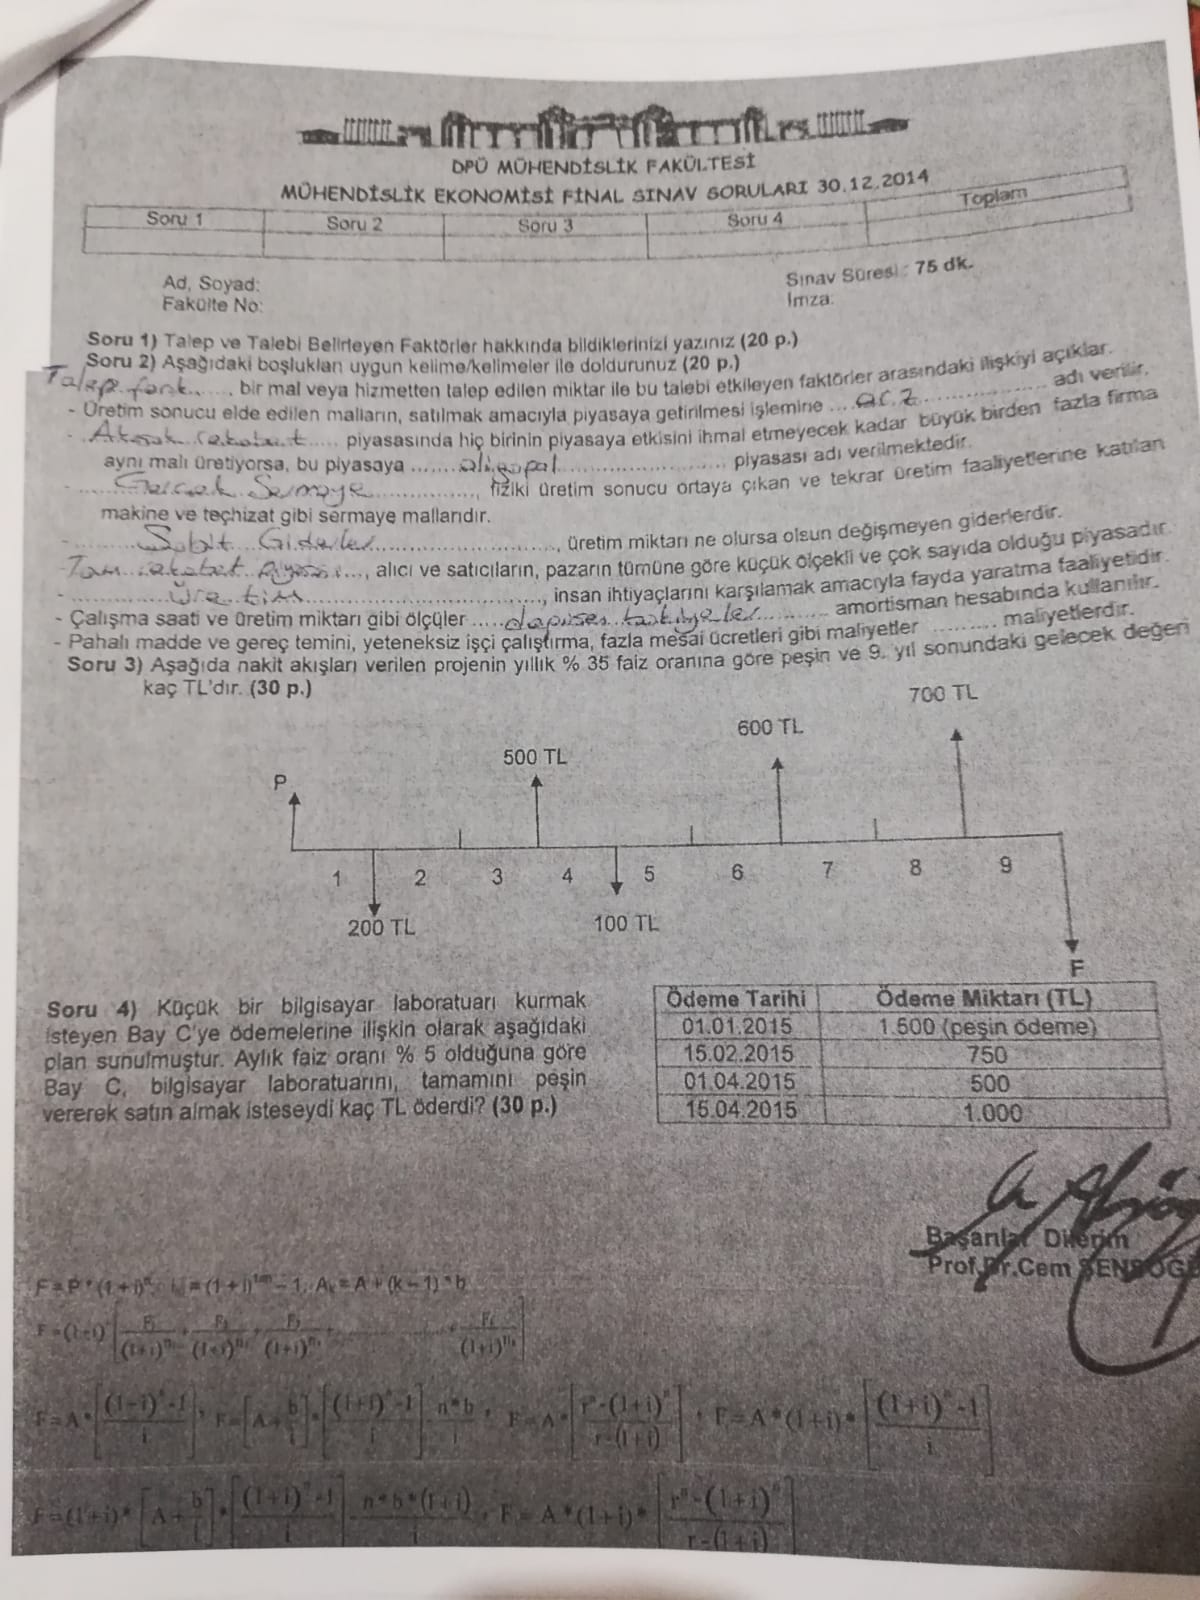 DPÜ MÜHENDİSLİK FAKÜLTESİ
MÜHENDİSLİK EKONOMİSİ FİNAL SINAV SORULARI 30.12.2014
Soru 1 Soru 2 Soru 3 Soru 4 Toplam
Ad, Soyad: Sınav Süresi : 75 dk.
Fakülte No: İmza:
Soru 1) Talep ve Talebi Belirleyen Faktörler hakkında bildiklerinizi yazınız (20 p.)
Soru 2) Aşağıdaki boşlukları uygun kelime/kelimeler ile doldurunuz (20 p.)
Talep fonk....... bir mal veya hizmetten talep edilen miktar ile bu talebi etkileyen faktörler arasındaki ilişkiyi açıklar.
- Üretim sonucu elde edilen malların, satılmak amacıyla piyasaya getirilmesi işlemine ....arz.................. adı verilir.
- Aksak rekabet..... piyasasında hiç birinin piyasaya etkisini ihmal etmeyecek kadar büyük birden fazla firma
aynı malı üretiyorsa, bu piyasaya .......oligopol....................... piyasası adı verilmektedir.
- ......Gerçek Sermaye................, fiziki üretim sonucu ortaya çıkan ve tekrar üretim faaliyetlerine katılan
makine ve teçhizat gibi sermaye mallarıdır.
- .........Sabit Giderler..........................., üretim miktarı ne olursa olsun değişmeyen giderlerdir.
-Tam rekabet Piyasası...., alıcı ve satıcıların, pazarın tümüne göre küçük ölçekli ve çok sayıda olduğu piyasadır.
- ..............Üretim....................................., insan ihtiyaçlarını karşılamak amacıyla fayda yaratma faaliyetidir.
- Çalışma saati ve üretim miktarı gibi ölçüler ..... ......... amortisman hesabında kullanılır.
- Pahalı madde ve gereç temini, yeteneksiz işçi çalıştırma, fazla mesai ücretleri gibi maliyetler .......... maliyetlerdir.
Soru 3) Aşağıda nakit akışları verilen projenin yıllık % 35 faiz oranına göre peşin ve 9. yıl sonundaki gelecek değeri
kaç TL'dır. (30 p.)
700 TL
600 TL
500 TL
P
1 2 3 4 5 6 7 8 9
200 TL 100 TL
F
Soru 4) Küçük bir bilgisayar laboratuarı kurmak
isteyen Bay C'ye ödemelerine ilişkin olarak aşağıdaki
plan sunulmuştur. Aylık faiz oranı % 5 olduğuna göre
Bay C, bilgisayar laboratuarını, tamamını peşin
vererek satın almak isteseydi kaç TL öderdi? (30 p.)
Ödeme Tarihi Ödeme Miktarı (TL)
01.01.2015 1.500 (peşin ödeme)
15.02.2015 750
01.04.2015 500
15.04.2015 1.000
Başarılar Dilerim
Prof.Dr.Cem